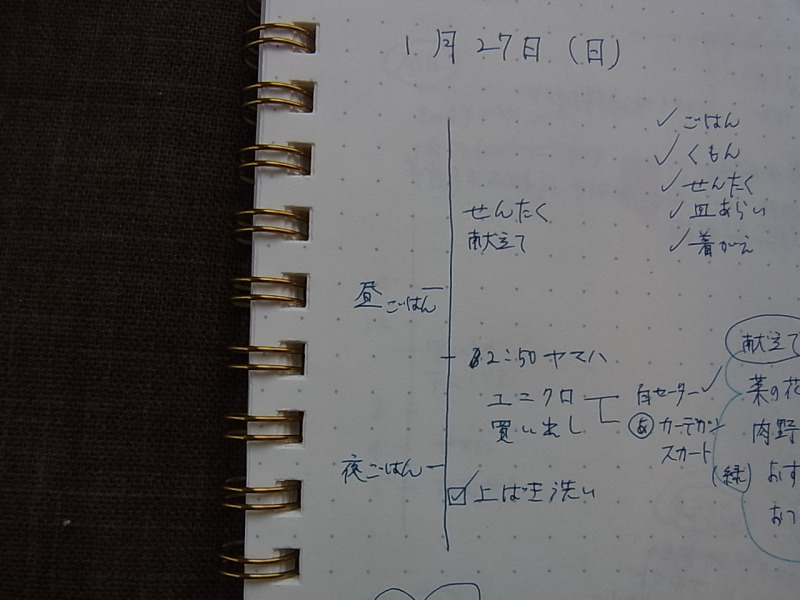 1月27日(日)
✓ごはん
✓くもん
✓せんたく
✓皿あらい
✓着がえ
せんたく
献立て
昼ごはん
2:50 ヤマハ
ユニクロ
買い出し
白セーター✓
カーデガン
スカート
夜ごはん
☑上ばき洗い
献立て
菜の花
肉野
(緑)
おす
おつ